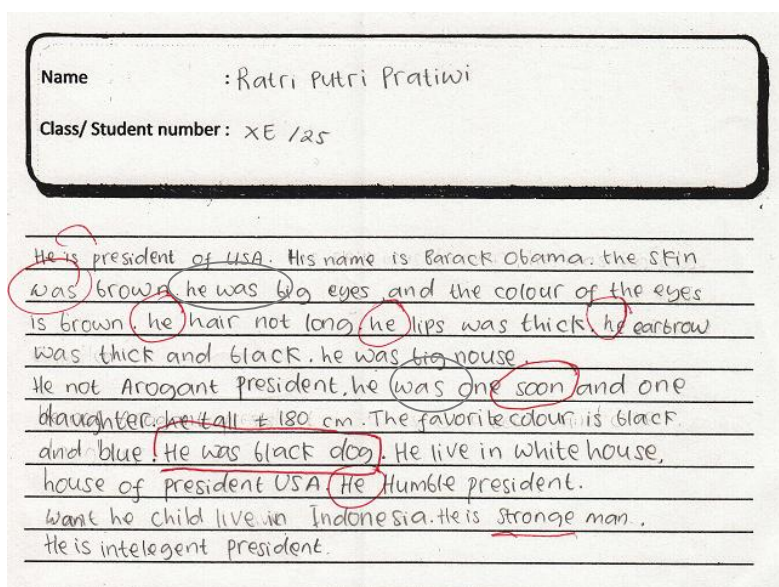 Name : Ratri Putri Pratiwi
Class/ Student number : XE /25
He is president of USA. His name is Barack Obama. the skin
was brown. he was big eyes and the colour of the eyes
is brown. he hair not long. he lips was thick. he earbrow
was thick and black. he was big nouse.
He not Arogant president. he was one soon and one
daughter. he tall ± 180 cm. The favorite colour is black
and blue. He was black dog. He live in white house,
house of president USA. He Humble president.
want he child live in Indonesia. He is stronge man.
He is intelegent president.